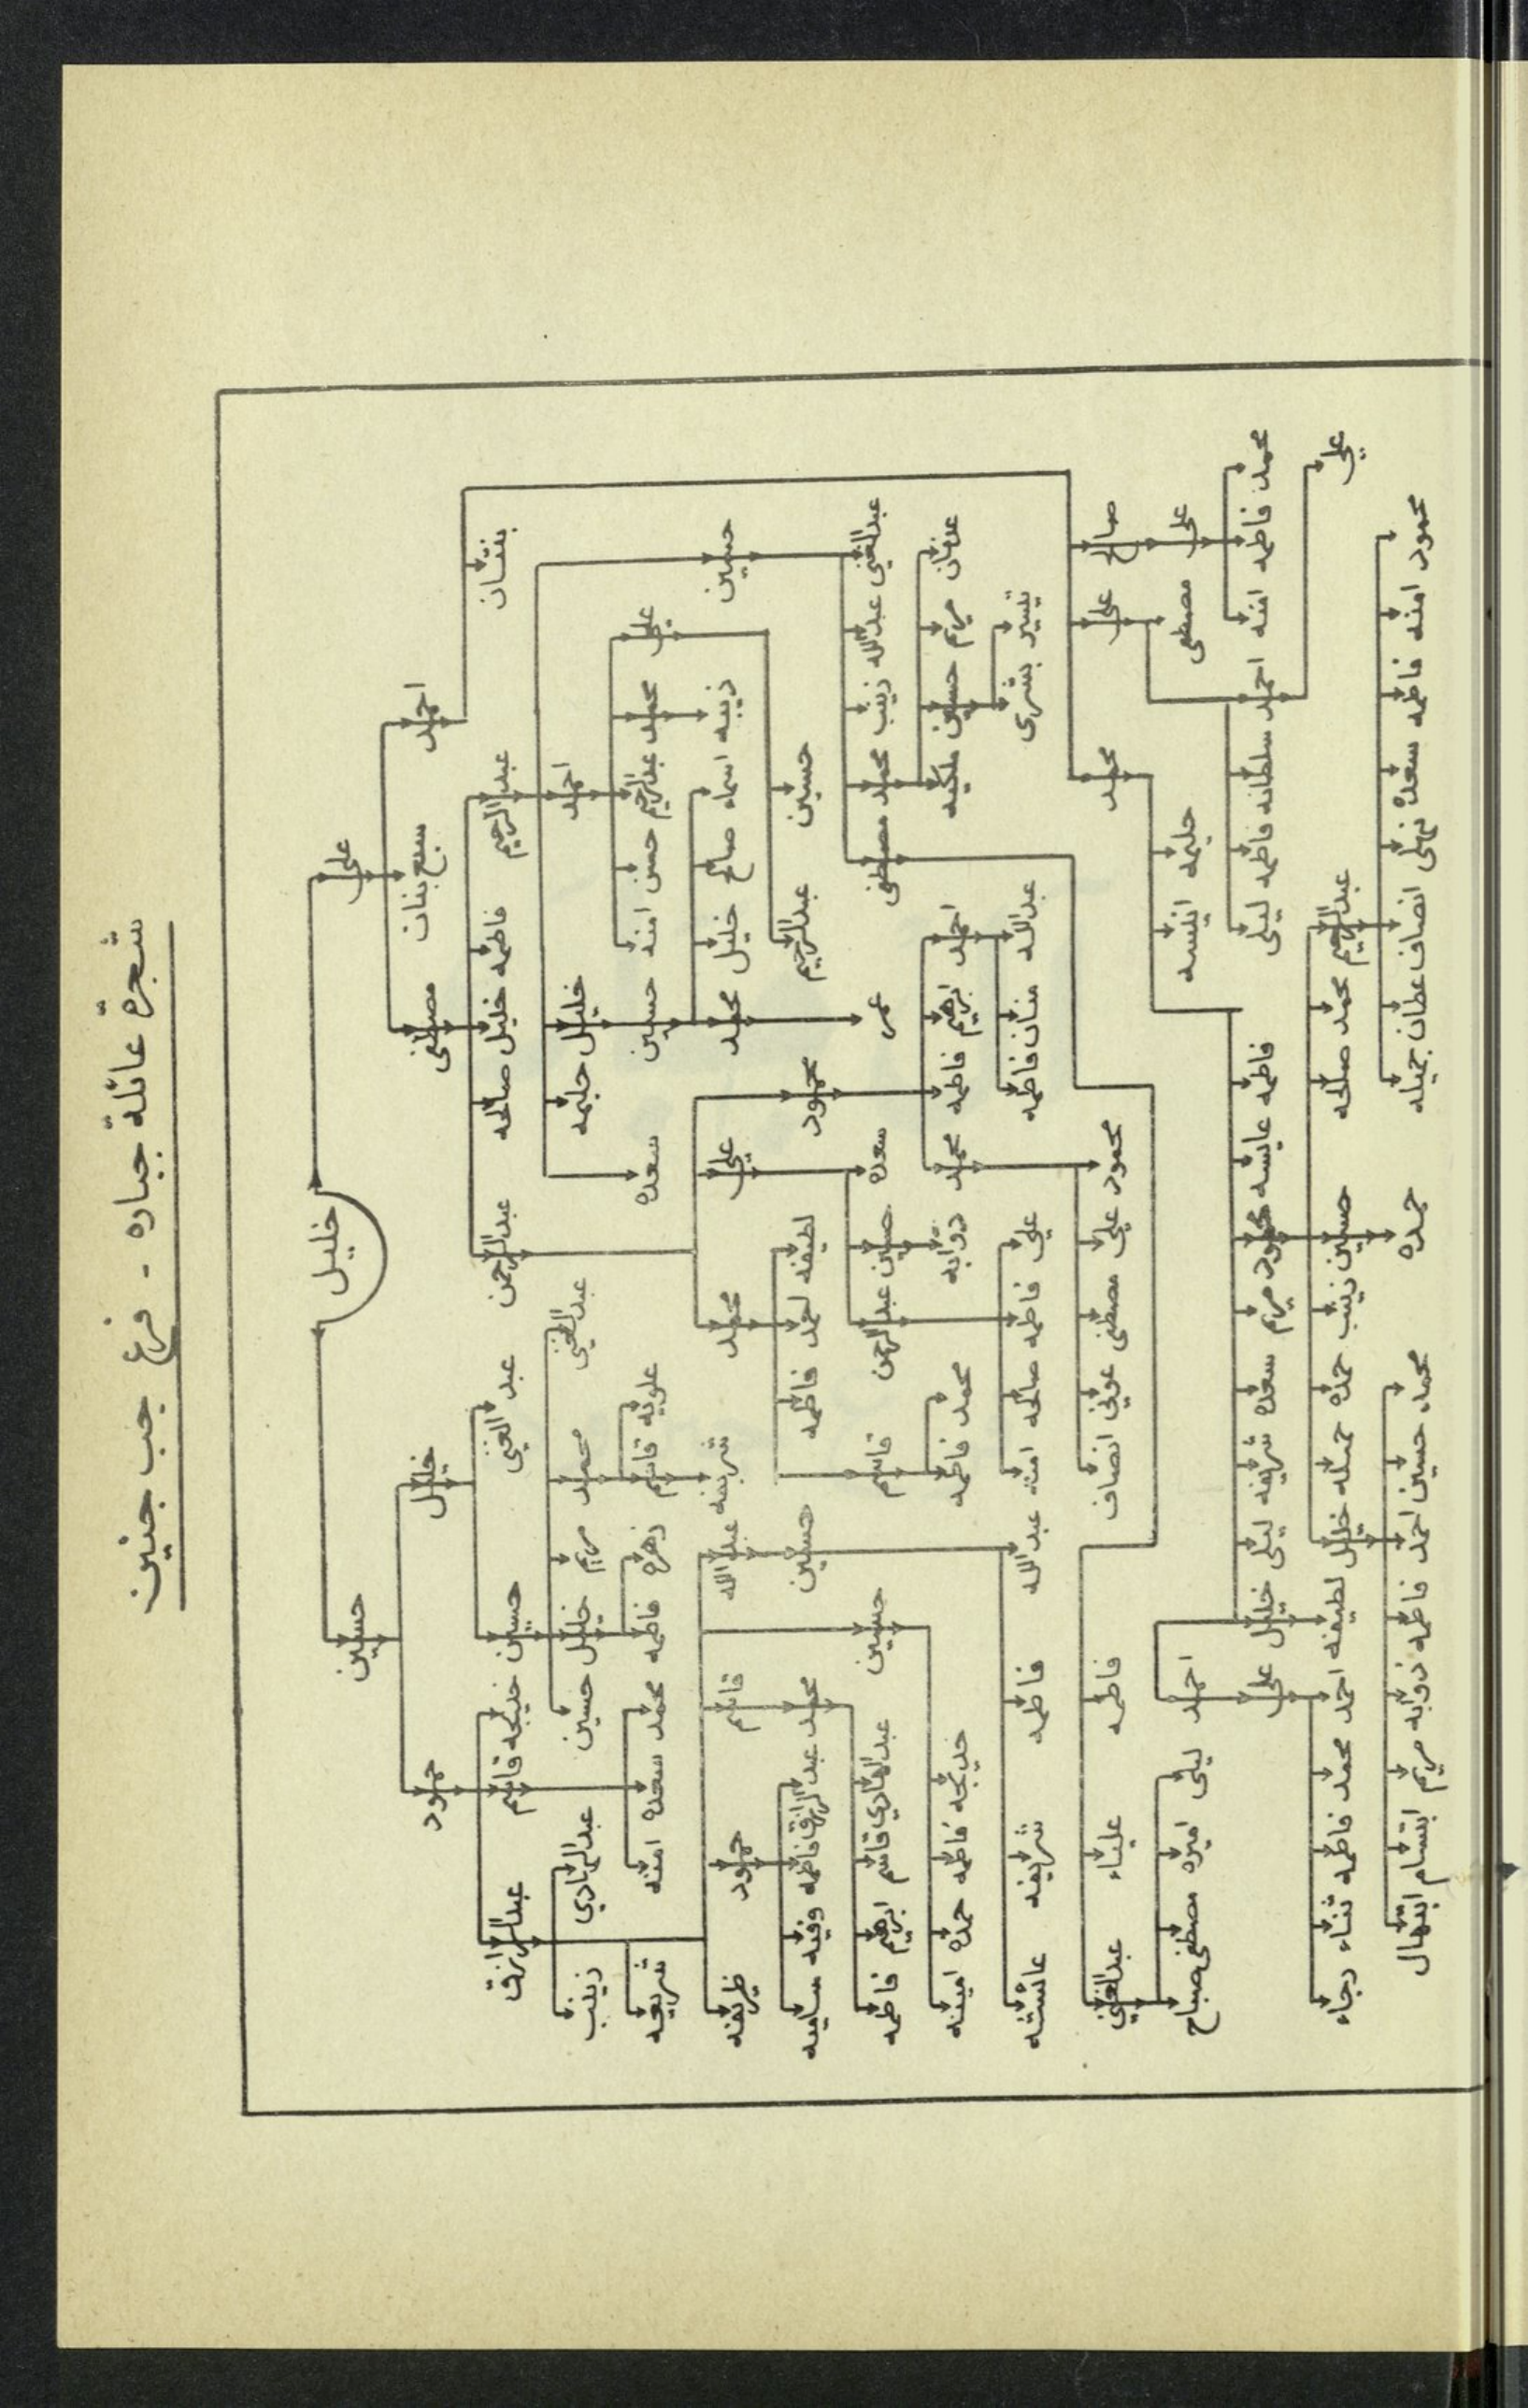 شجرة عائلة جباره - فرع جب جنين
خليل
علي حسين
احمد سبع بنان مصطفى خليل حمود
بنتان عبد الرحيم فاطمه خليل صالحه عبدالرحمن عبد الغني حسين خديجه قاسم عبدالرزاق
احمد خليل حليمه عبدالغني محمد مريم خليل حسين عبدالهادي زينب
علي محمد عبدالرحيم حسن امنه حسين سعده علويه قاسم زهره فاطمه محمد سعده امنه شريفه
حسين ذيبه اسماء صالح خليل محمد علي محمد شريفه عبدالله قاسم حمود ظريفه
حسين عبدالرحيم محمود لطيفه احمد فاطمه حسين محمد عبدالرزاق فاطمه وفيه ساميه
عبدالغني عبدالله زينب محمد مصطفى عمر سعده حسين عبدالرحمن قاسم حسين عبدالهادي قاسم ابراهيم فاطمه
عدنان مريم حسين ملكيه احمد ابراهيم فاطمه محمد ذوابه محمد فاطمه خديجه فاطمه حمده امينه
تيسير بشرى عبدالله فاطمه علي فاطمه صالحه امنه عبدالله فاطمه شريفه عائشه
صالح علي محمد محمود علي مصطفى عوني انصاف فاطمه علياء عبدالغني
علي مصطفى حليمه انيسه احمد ليلى اميره مصطفى صباح
محمد فاطمه امنه احمد سلطانه فاطمه ليلى فاطمه عايشه محمود مريم سعده شريفه ليلى خليل علي
علي عبدالرحيم محمد صالحه حسين زينب حمده جميله خليل لطيفه احمد محمد فاطمه ثناء رجاء
محمود امنه فاطمه سعده انصاف جميله حمده حسين احمد فاطمه ذوابه مريم ابتسام ابتهال